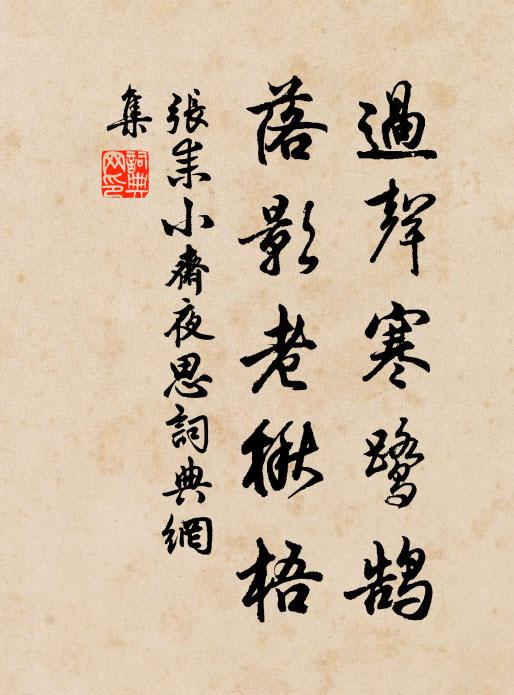 過聲寒鷺鵠
落影老楸梧
張耒小齋夜思詞典網
集
詞典
網印